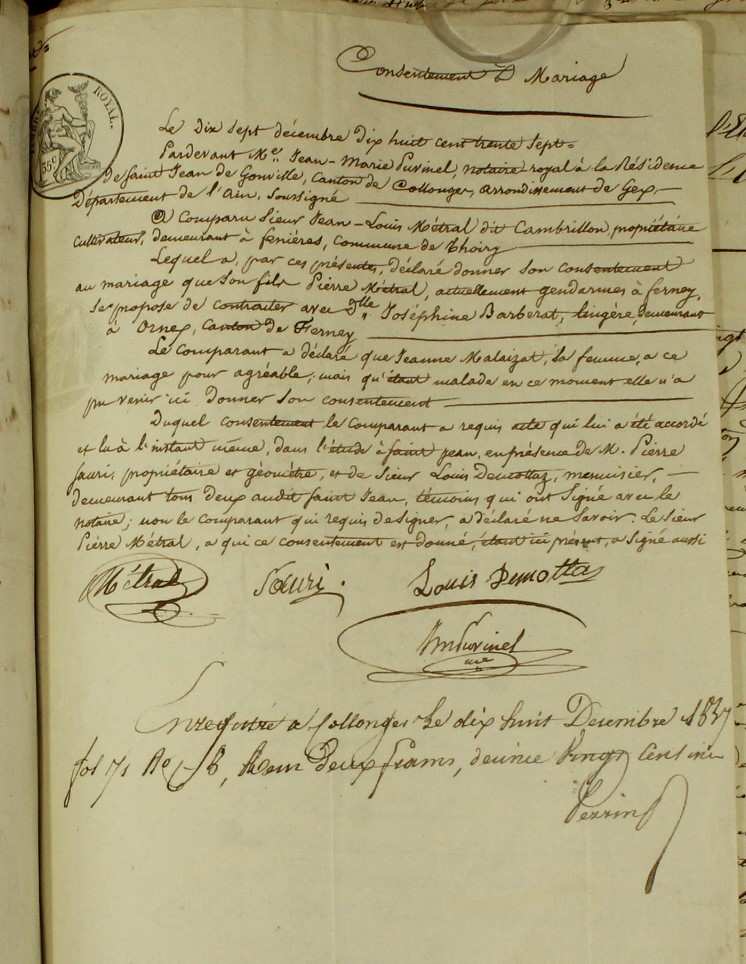 Consentement D Mariage
ROYAL.
35c
Le Dix sept décembre Dix huit cent trente Sept =
Pardevant Me. Jean-Marie Puvinel, notaire royal à la Résidence
de Saint Jean de Gonville, Canton de Collonges, arrondissement de Gex,
Département de l'ain, soussigné
A Comparu Sieur Jean-Louis Métral dit Cambrillon, propriétaire
cultivateur, demeurant à feniéres, commune de Thoiry
Lequel a, par ces présentes, déclaré donner son consentement
au mariage que son fils Pierre Métral, actuellement gendarmes à ferney,
se propose de contracter avec Dlle Joséphine Barberat, lingère, demeurant
à Ornex, Canton de Ferney
Le comparant a déclaré que Jeanne Malaizat, sa femme, a ce
mariage pour agréable, mais qu'étant malade en ce moment elle n'a
pu venir ici donner son consentement
Duquel consentement le comparant a requis acte qui lui a été accordé
et lu à l'instant même, dans l'étude à saint jean, en présence de M. Pierre
fauri, propriétaire et géomètre, et de Sieur Louis Demottaz, menuisier,
demeurant tous deux audit saint Jean, témoins qui ont signé avec le
notaire; non le comparant qui requis de signer, a déclaré ne savoir. Le Sieur
Pierre Métral, a qui ce consentement est donné, étant ici présent, a signé aussi
Métral Fauri. Louis Demottaz
Puvinel
nre
Enregistré a Collonges le dix huit Decembre 1837
fol 71 Ro, Reçu deux francs, decime vingt Centimes
Perrin